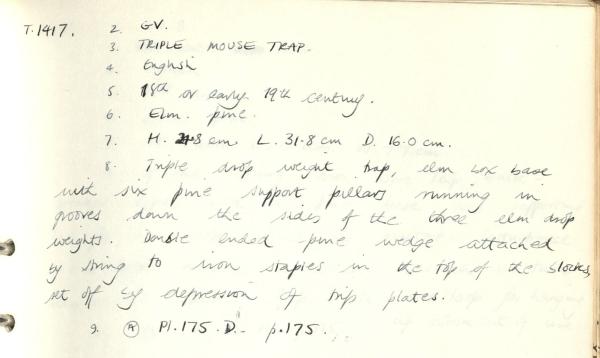 T.1417. 2. GV.
3. TRIPLE MOUSE TRAP.
4. English
5. 18th or early 19th century.
6. Elm. pine.
7. H. 8 cm L. 31.8 cm D. 16.0 cm.
8. Triple drop weight trap, elm box base
with six pine support pillars running in
grooves down the sides of the three elm drop
weights. Double ended pine wedge attached
by string to iron staples in the top of the blocks,
set off by depression of trip plates.
9. (R) Pl. 175. D. p. 175.